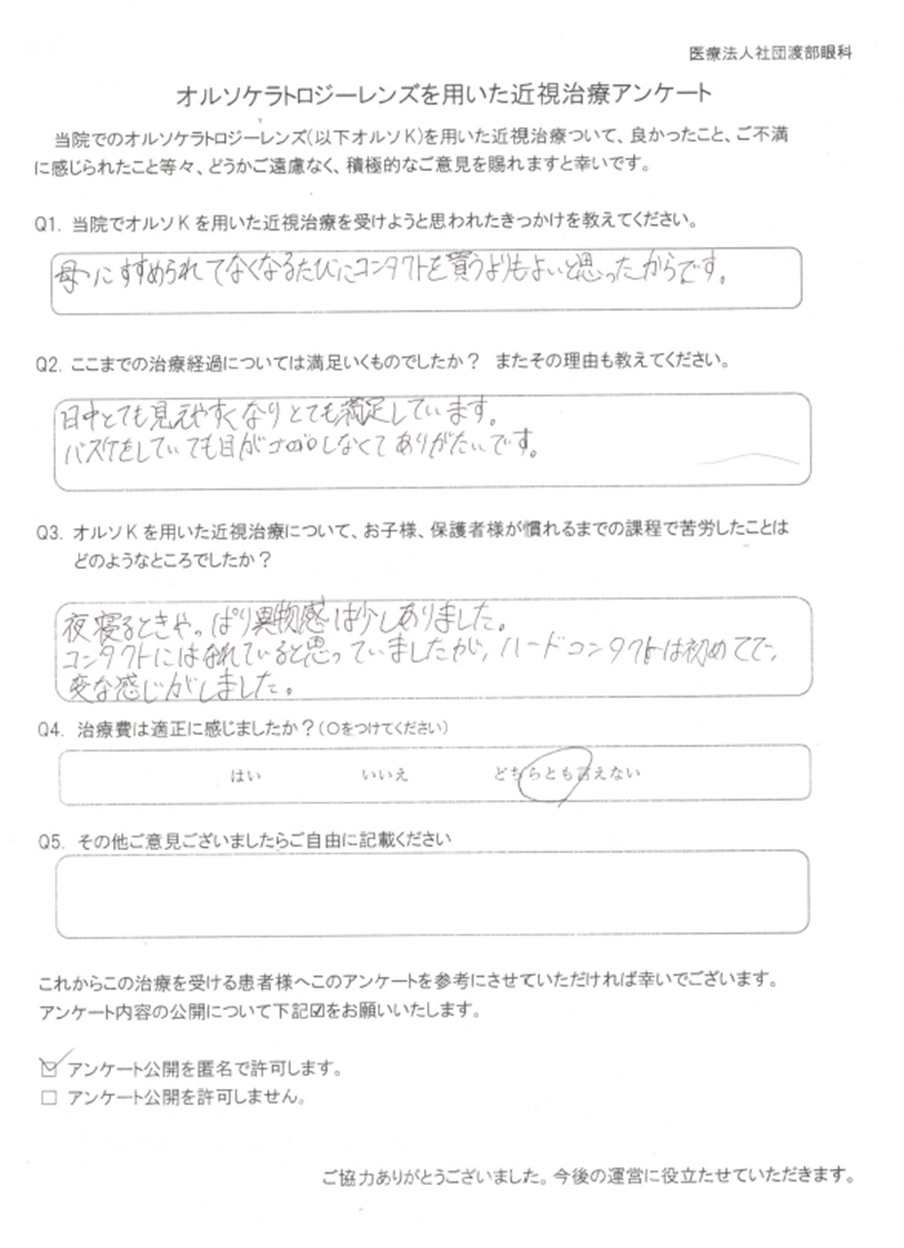 医療法人社団渡部眼科
オルソケラトロジーレンズを用いた近視治療アンケート
当院でのオルソケラトロジーレンズ(以下オルソK)を用いた近視治療ついて、良かったこと、ご不満
に感じられたこと等々、どうかご遠慮なく、積極的なご意見を賜れますと幸いです。
Q1. 当院でオルソKを用いた近視治療を受けようと思われたきっかけを教えてください。
母にすすめられてなくなるたびにコンタクトを買うよりもよいと思ったからです。
Q2. ここまでの治療経過については満足いくものでしたか? またその理由も教えてください。
日中とても見えやすくなりとても満足しています。
バスケをしていても目がゴロゴロしなくてありがたいです。
Q3. オルソKを用いた近視治療について、お子様、保護者様が慣れるまでの課程で苦労したことは
どのようなところでしたか?
夜寝るときやっぱり異物感は少しありました。
コンタクトにはなれていると思っていましたが、ハードコンタクトは初めてで、
変な感じがしました。
Q4. 治療費は適正に感じましたか?(〇をつけてください)
はい いいえ どちらとも言えない
Q5. その他ご意見ございましたらご自由に記載ください
これからこの治療を受ける患者様へこのアンケートを参考にさせていただければ幸いでございます。
アンケート内容の公開について下記☑をお願いいたします。
☑ アンケート公開を匿名で許可します。
□ アンケート公開を許可しません。
ご協力ありがとうございました。今後の運営に役立たせていただきます。